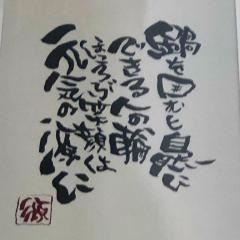 鍋を囲むと自然に
できる人の輪
ほころび笑顔は
元気の源に